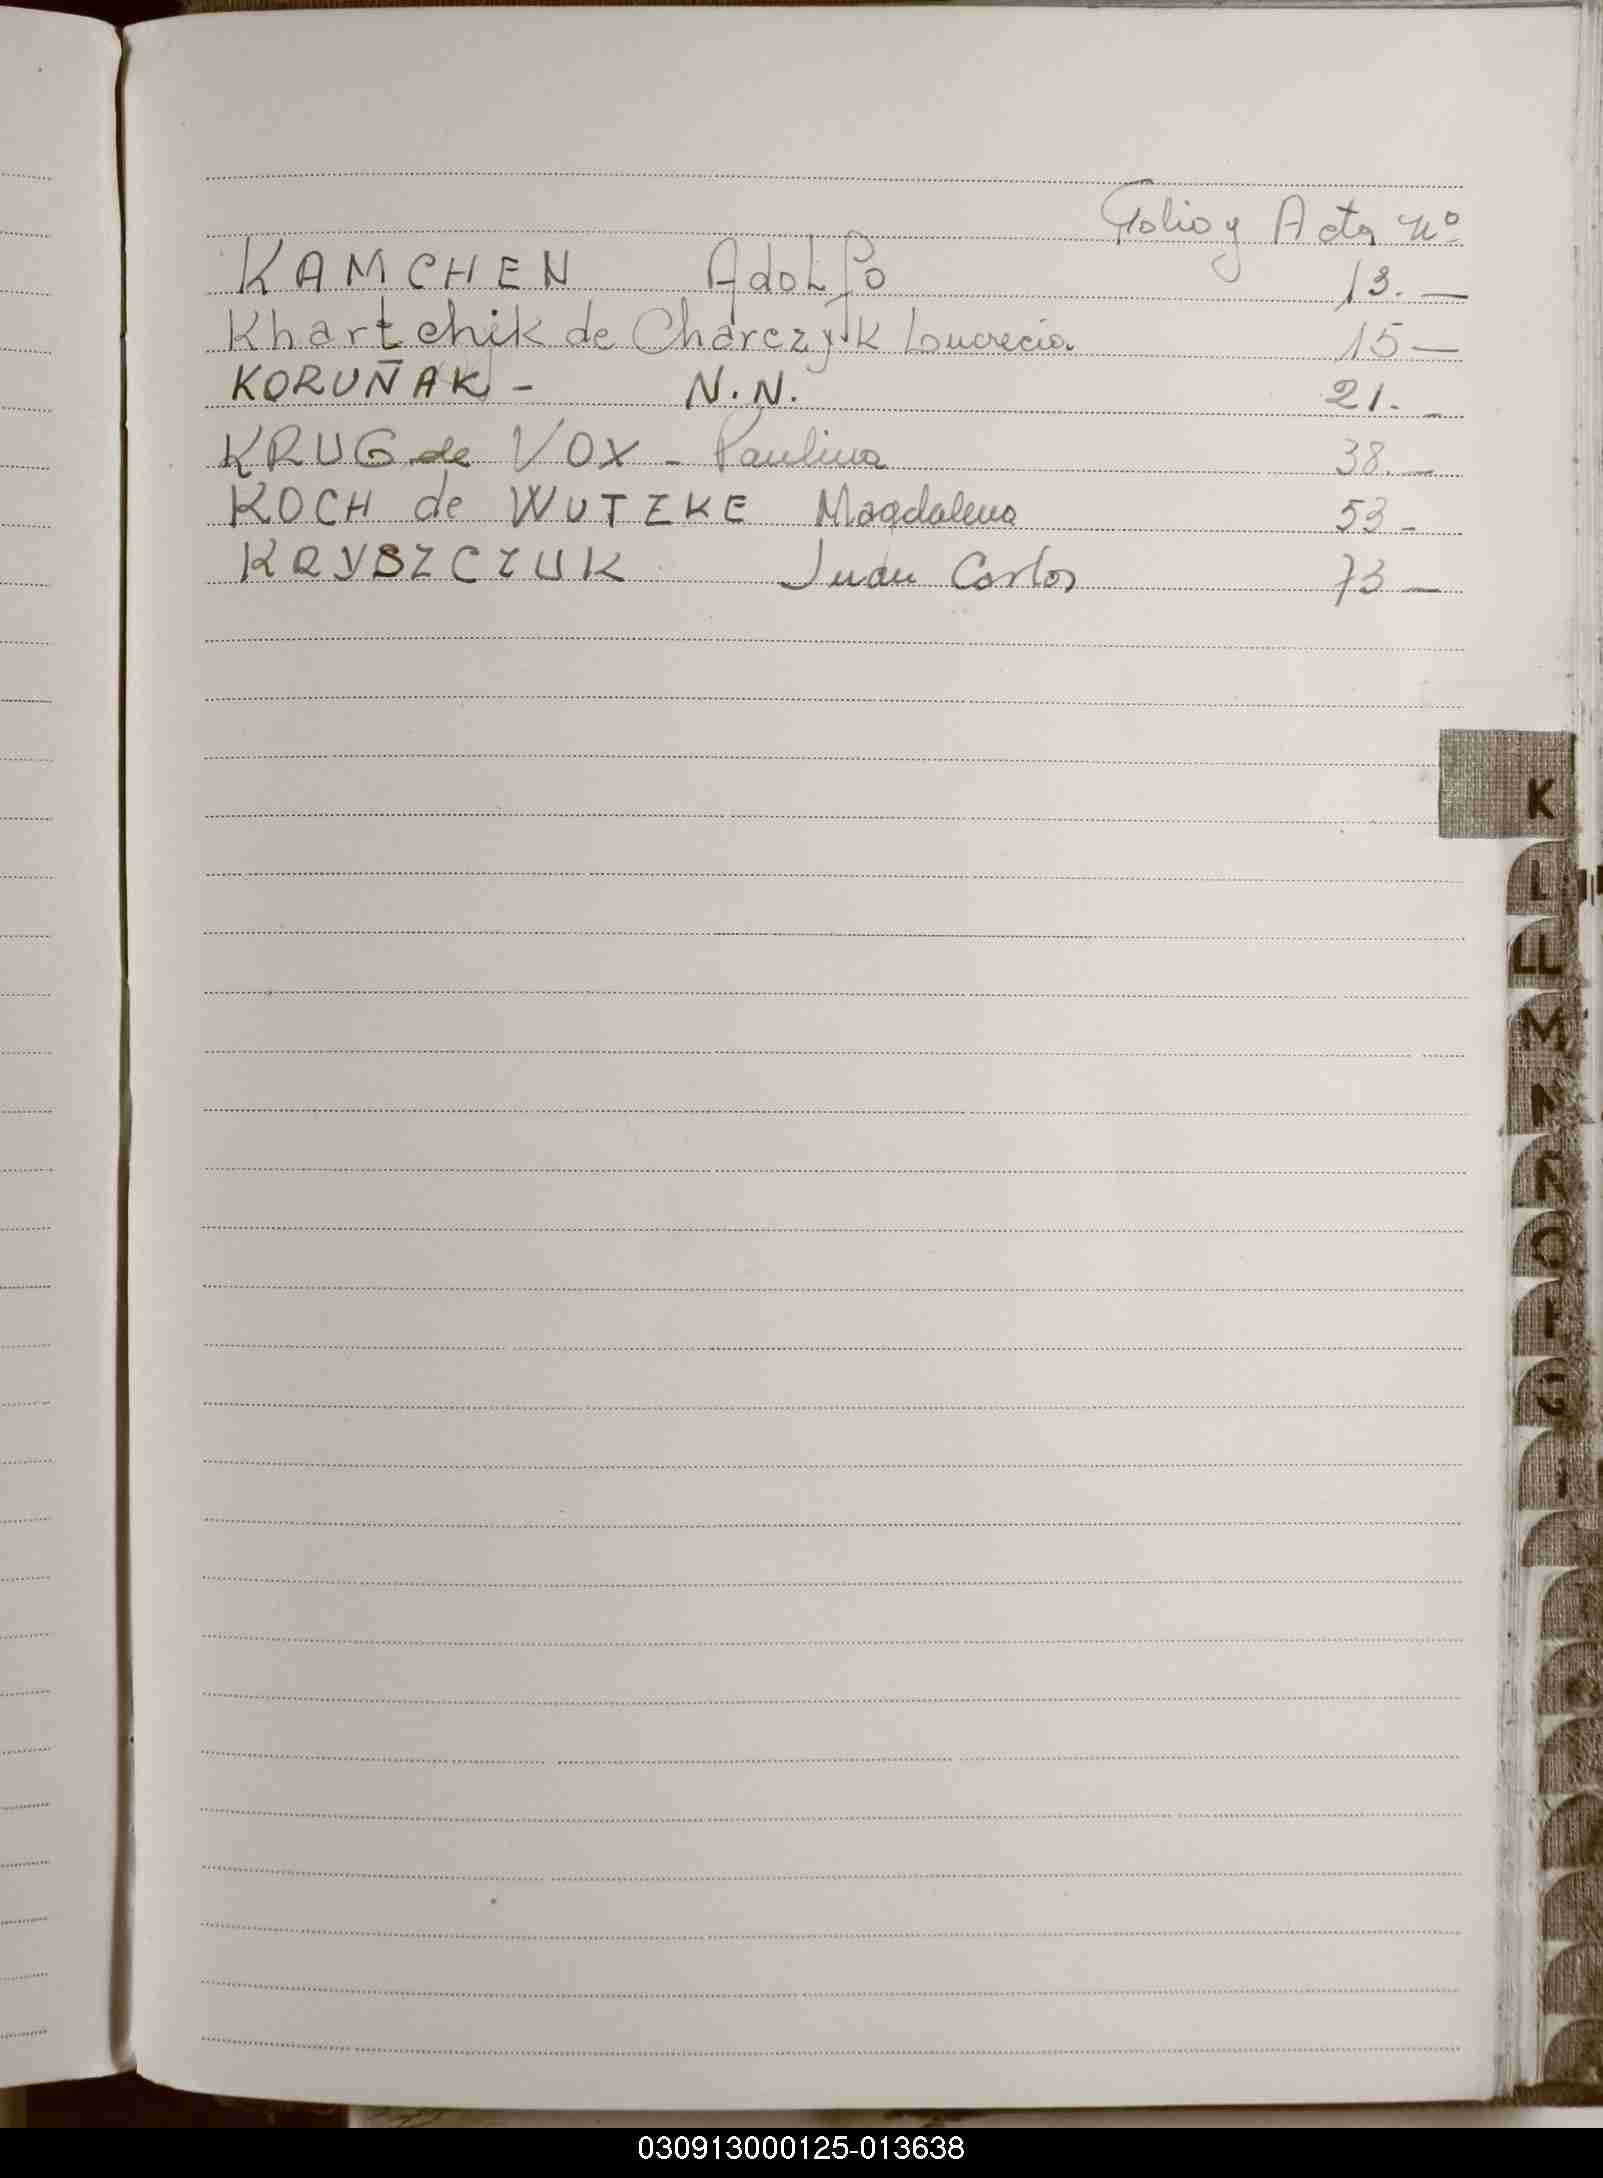 Folio y Acta nº
KAMCHEN Adolfo 13.—
Khartchik de Charczyk Lucrecia 15—
KORUÑAK - N.N. 21.-
KRUG de VOX - Paulina 38.—
KOCH de WUTZKE Magdalena 53-
KRYSZCZUK Juan Carlos 73—
K
L
LL
M
N
Ñ
O
P
Q
030913000125-013638